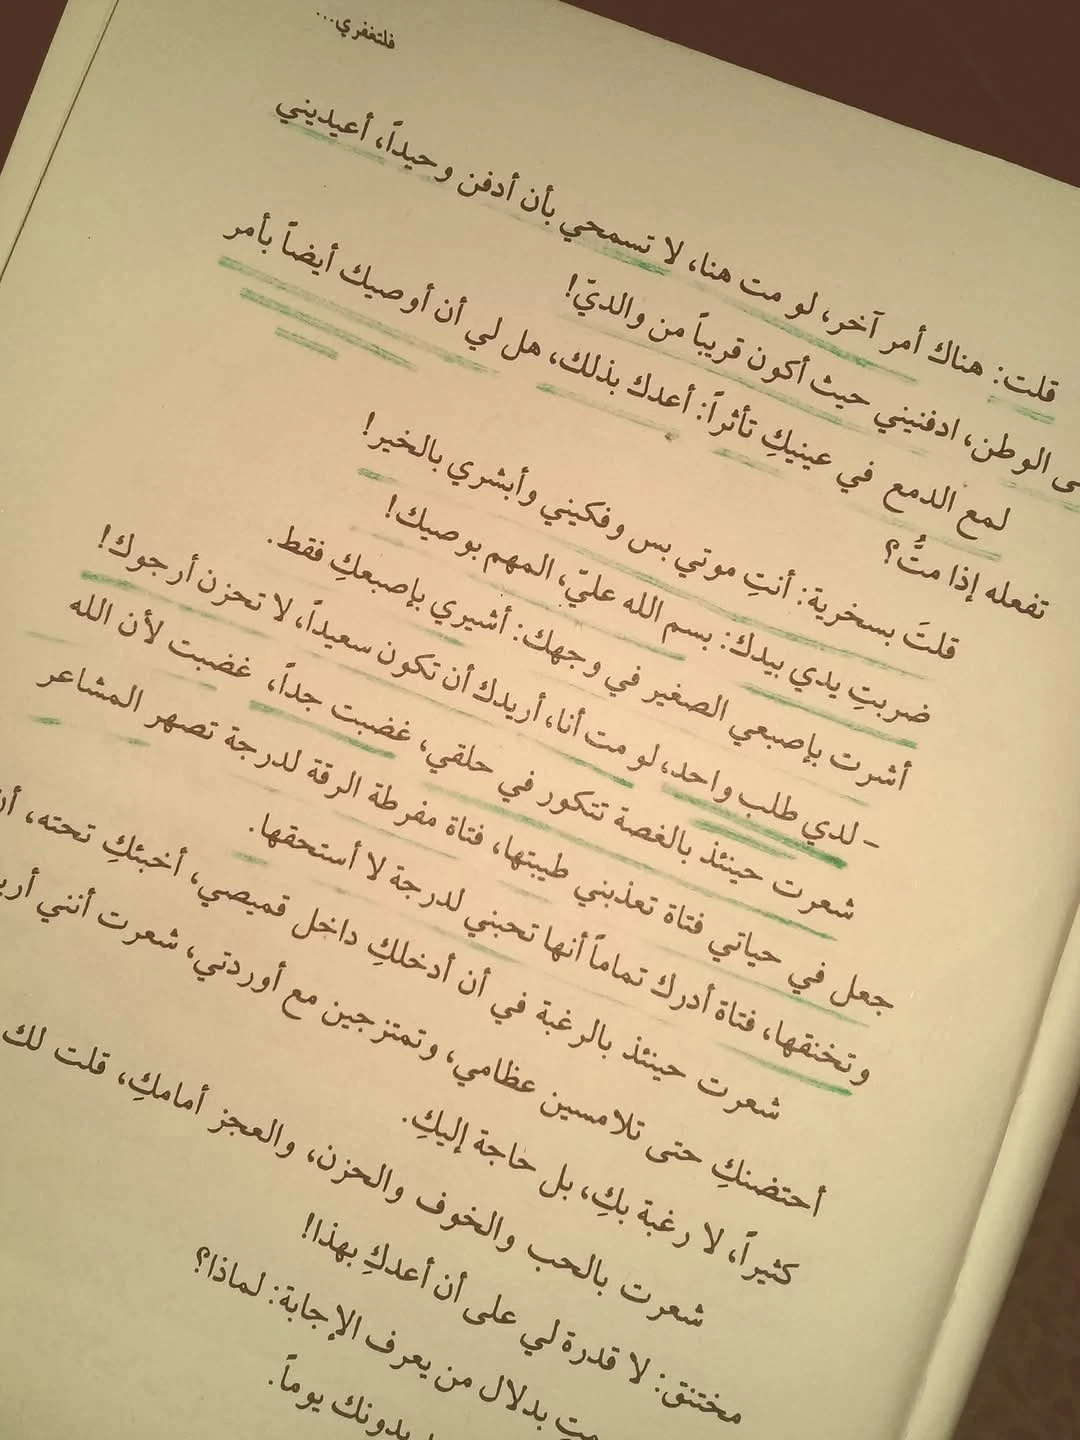 فلتغفري...
قلت: هناك أمر آخر، لو مت هنا، لا تسمحي بأن أدفن وحيداً، أعيديني
الوطن، ادفنيني حيث أكون قريباً من والديّ!
لمع الدمع في عينيكِ تأثراً: أعدك بذلك، هل لي أن أوصيك أيضاً بأمر
تفعله إذا متُّ؟
قلتَ بسخرية: أنتِ موتي بس وفكيني وأبشري بالخير!
ضربتِ يدي بيدك: بسم الله عليّ، المهم بوصيك!
أشرت بإصبعي الصغير في وجهك: أشيري بإصبعكِ فقط.
- لدي طلب واحد، لو مت أنا، أريدك أن تكون سعيداً، لا تحزن أرجوك!
شعرت حينئذ بالغصة تتكور في حلقي، غضبت جداً، غضبت لأن الله
جعل في حياتي فتاة تعذبني طيبتها، فتاة مفرطة الرقة لدرجة تصهر المشاعر
وتخنقها، فتاة أدرك تماماً أنها تحبني لدرجة لا أستحقها.
شعرت حينئذ بالرغبة في أن أدخلكِ داخل قميصي، أخبئكِ تحته،
أحتضنكِ حتى تلامسين عظامي، وتمتزجين مع أوردتي، شعرت أنني
كثيراً، لا رغبة بكِ، بل حاجة إليكِ.
شعرت بالحب والخوف والحزن، والعجز أمامكِ، قلت لك
مختنق: لا قدرة لي على أن أعدكِ بهذا!
بدلال من يعرف الإجابة: لماذا؟
بدونك يوماً.